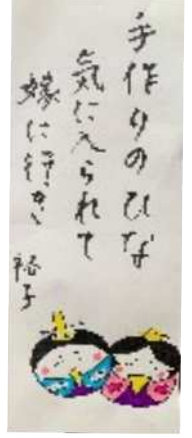 手作りのひな
気に入られて
嫁に行き
裕子